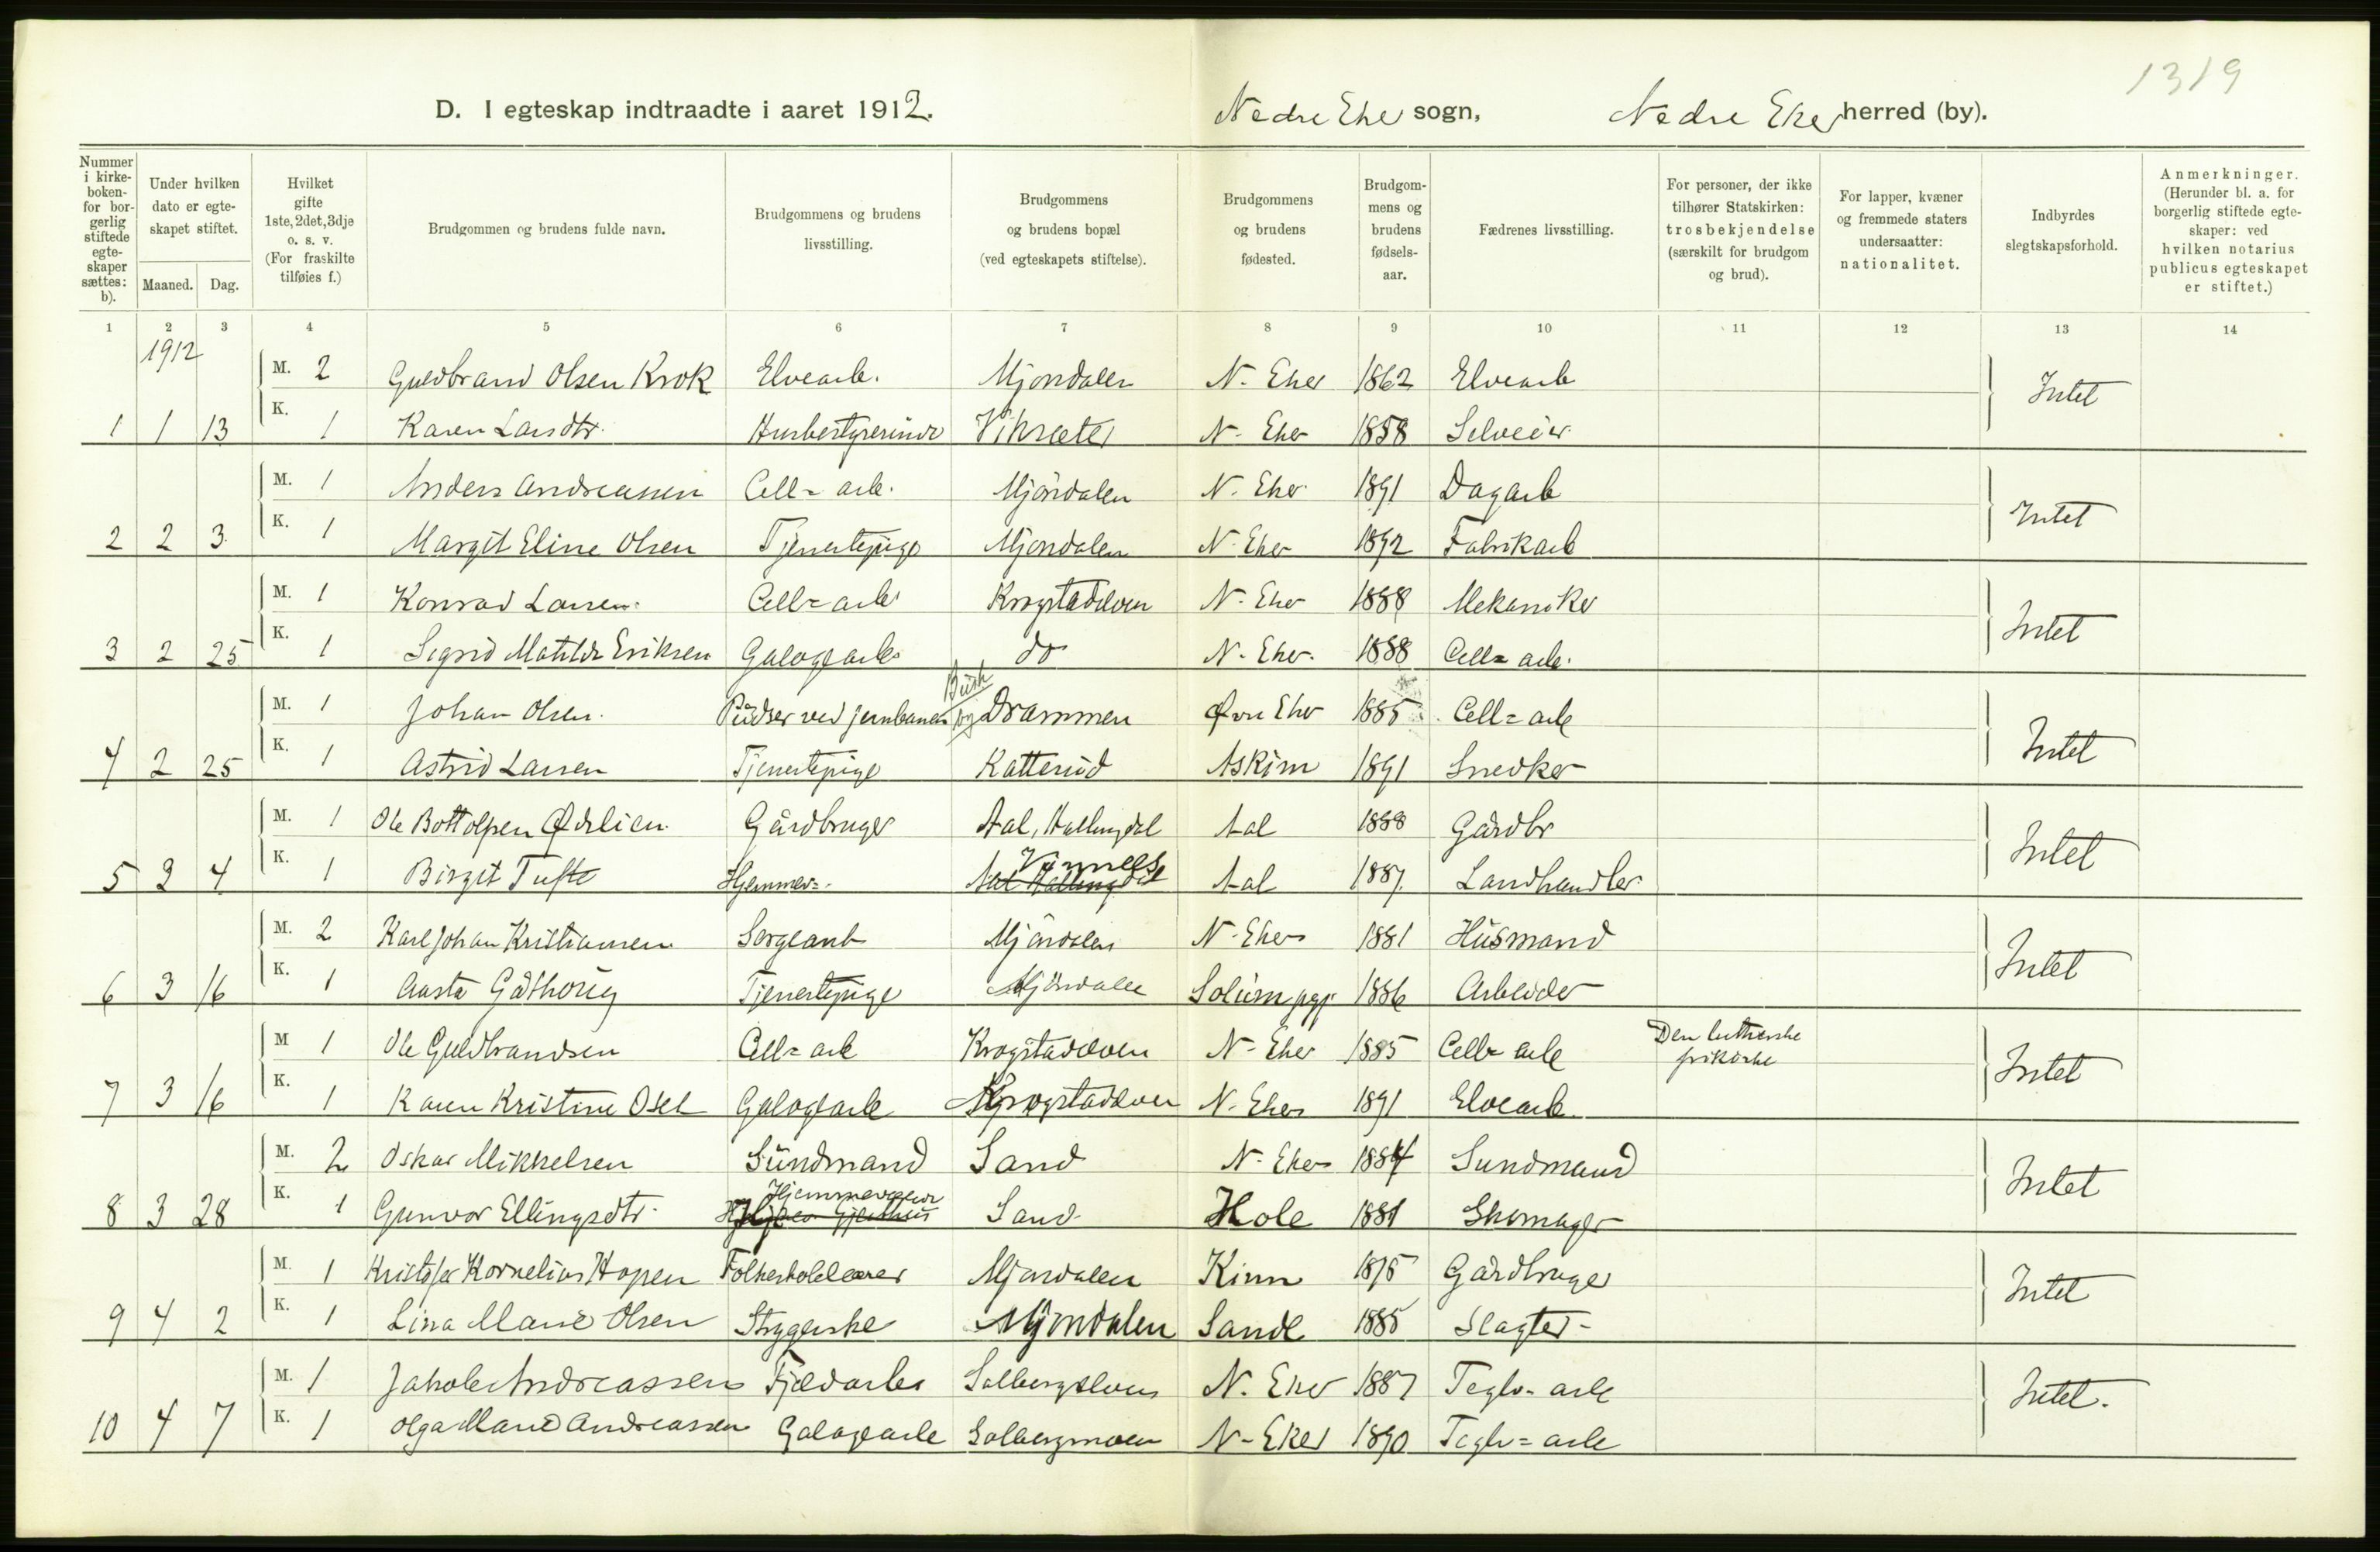 1319
D. I egteskap indtraadte i aaret 1912. Nedre Eker sogn, Nedre Eker herred (by).
Nummer i kirkeboken- for borgerlig stiftede egteskaper sættes: b).
Under hvilken dato er egteskapet stiftet.
Maaned. Dag.
Hvilket gifte 1ste, 2det, 3dje o. s. v. (For fraskilte tilføies f.)
Brudgommen og brudens fulde navn.
Brudgommens og brudens livsstilling.
Brudgommens og brudens bopæl (ved egteskapets stiftelse).
Brudgommens og brudens fødested.
Brudgommens og brudens fødselsaar.
Fædrenes livsstilling.
For personer, der ikke tilhører Statskirken: trosbekjendelse (særskilt for brudgom og brud).
For lapper, kvæner og fremmede staters undersaatter: nationalitet.
Indbyrdes slegtskapsforhold.
Anmerkninger. (Herunder bl. a. for borgerlig stiftede egteskaper: ved hvilken notarius publicus egteskapet er stiftet.)
1 2 3 4 5 6 7 8 9 10 11 12 13 14
1912
M. 2 Guldbrand Olsen Krok Elvearb. Mjøndalen N. Eker 1862 Elvearb Intet
1 1 13 K. 1 Karen Larsdtr. Husbestyrerinde Vikseter N. Eker 1858 Selveier
M. 1 Anders Andreassen Cell= arb. Mjøndalen N. Eker 1891 Dagarb Intet
2 2 3 K. 1 Margit Eline Olsen Tjenestepige Mjøndalen N. Eker 1892 Fabrikarb
M. 1 Konrad Larsen Cell= arb Krogstadelven N. Eker 1888 Mekaniker Intet
3 2 25 K. 1 Sigrid Matilde Eriksen Galogearb do N. Eker. 1888 Cell= arb.
M. 1 Johan Olsen. Pudser ved jernbanen Drammen Øvre Eker 1885 Cell= arb Intet
4 2 25 K. 1 Astrid Larsen Tjenestepige Katterud Askim 1891 Snedker
M. 1 Ole Bottolfsen Ødelien Gårdbruger Aal, Hallingdal Aal 1888 Gårdbr Intet
5 2 4 K. 1 Birgit Tufte Hjemmev= Aal Hallingdal Aal 1887 Landhandler
M. 2 Karl Johan Kristiansen Sergeant Mjøndalen N. Eker 1881 Husmand Intet
6 3 16 K. 1 Aasta Gåthoug Tjenestepige Mjøndalen Solum pgj. 1886 Arbeider
M 1 Ole Guldbrandsen Cell= arb Krogstadelven N. Eker 1885 Cell= arb Den lutherske frikirke Intet
7 3 16 K. 1 Karen Kristine Oset Galogearb Krogstadelven N. Eker 1891 Elvearb
M. 2 Oskar Mikkelsen Sundmand Sand N. Eker 1884 Sundmand Intet
8 3 28 K. 1 Gunvor Ellingsdtr. Hjemmeværende Sand Hole 1881 Skomager
M. 1 Kristofer Kornelius Hopen Folkeskolelærer Mjøndalen Kinn 1875 Gårdbruger Intet
9 4 2 K. 1 Lina Marie Olsen Strygerske Mjøndalen Sande 1885 Slagter
M. 1 Jakob Andreassen Fjeldarb Solbergelven N. Eker 1887 Teglv= arb Intet.
10 4 7 K. 1 Olga Marie Andreassen Galogearb Solbergmoen N. Eker 1890 Teglv= arb